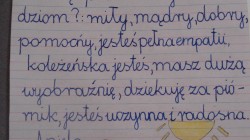 dziom?: miły, mądry, dobry,
pomocny, jesteś pełna empatii,
koleżeńska jesteś, masz dużą
wyobraźnię, dziękuję za pió-
rnik, jesteś uczynna i radosna